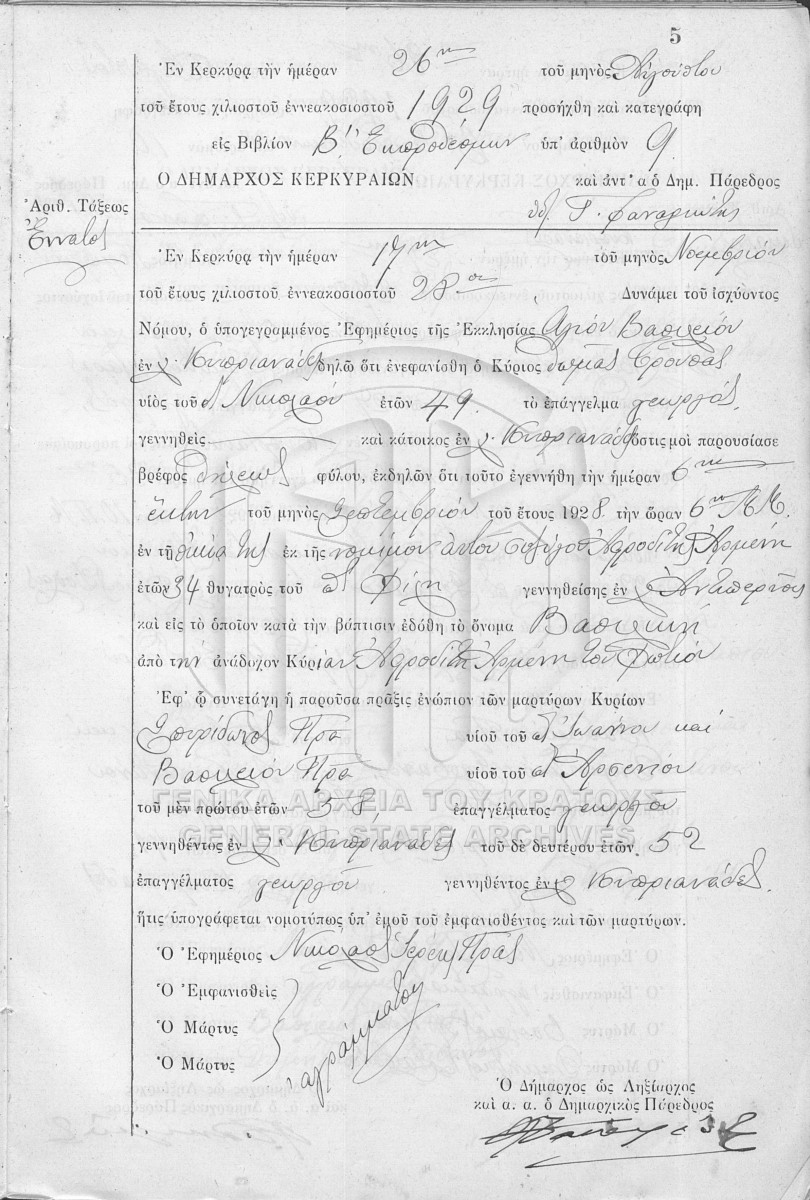 5
Ἐν Κερκύρᾳ τὴν ἡμέραν 26ην τοῦ μηνὸς Αὐγούστου
τοῦ ἔτους χιλιοστοῦ ἐννεακοσιοστοῦ 1929 προσήχθη καὶ κατεγράφη
εἰς Βιβλίον Β!! Ἐκπροθέσμων ὑπ' ἀριθμὸν 9
Ὁ ΔΗΜΑΡΧΟΣ ΚΕΡΚΥΡΑΙΩΝ καὶ ἀντ' α ὁ Δημ. Πάρεδρος
Ἀριθ. Τάξεως
Ἔννατος
Γ. Φαναριώτης
Ἐν Κερκύρᾳ τὴν ἡμέραν 17ην τοῦ μηνὸς Νοεμβρίου
τοῦ ἔτους χιλιοστοῦ ἐννεακοσιοστοῦ 28ου Δυνάμει τοῦ ἰσχύοντος
Νόμου, ὁ ὑπογεγραμμένος Ἐφημέριος τῆς Ἐκκλησίας Ἁγίου Βασιλείου
ἐν χ. Κυπριανάδες δηλῶ ὅτι ἐνεφανίσθη ὁ Κύριος Θωμᾶς
υἱὸς τοῦ Νικολάου ἐτῶν 49. τὸ ἐπάγγελμα γεωργός,
γεννηθεὶς καὶ κάτοικος ἐν χ. Κυπριανάδες ὅστις μοι παρουσίασε
βρέφος θήλεως φύλου, ἐκδηλῶν ὅτι τοῦτο ἐγεννήθη τὴν ἡμέραν 6ην
ἕκτην τοῦ μηνὸς Σεπτεμβρίου τοῦ ἔτους 1928. τὴν ὥραν 6ην Μ.Μ.
ἐν τῇ οἰκίᾳ της ἐκ τῆς νομίμου αὐτοῦ συζύγου Ἀφροδίτης Ἀρμένη
ἐτῶν 34 θυγατρὸς τοῦ γεννηθείσης ἐν
καὶ εἰς τὸ ὁποῖον κατὰ τὴν βάπτισιν ἐδόθη τὸ ὄνομα Βασιλική
ἀπὸ τὴν ἀνάδοχον Κυρίαν Ἀφροδίτη Ἀρμένη τοῦ Φωτίου
Ἐφ' ᾧ συνετάγη ἡ παροῦσα πρᾶξις ἐνώπιον τῶν μαρτύρων Κυρίων
Σπυρίδωνος Πρα υἱοῦ τοῦ Ἰωάννου καί
Βασιλείου Πρα υἱοῦ τοῦ Ἀρσενίου
τοῦ μὲν πρώτου ἐτῶν 58, ἐπαγγέλματος γεωργοῦ
ΓΕΝΙΚΑ ΑΡΧΕΙΑ ΤΟΥ ΚΡΑΤΟΥΣ
GENERAL STATE ARCHIVES
γεννηθέντος ἐν χ. Κυπριανάδες τοῦ δὲ δευτέρου ἐτῶν 52
ἐπαγγέλματος γεωργοῦ γεννηθέντος ἐν χ Κυπριανάδες.
ἥτις ὑπογράφεται νομοτύπως ὑπ' ἐμοῦ τοῦ ἐμφανισθέντος καὶ τῶν μαρτύρων.
Ὁ Ἐφημέριος Νικόλαος Ἱερεὺς Πρᾶς
Ὁ Ἐμφανισθεὶς
Ὁ Μάρτυς
Ὁ Μάρτυς
ἀγράμματοι
Ὁ Δήμαρχος ὡς Ληξίαρχος
καὶ α. α. ὁ Δημαρχικὸς Πάρεδρος